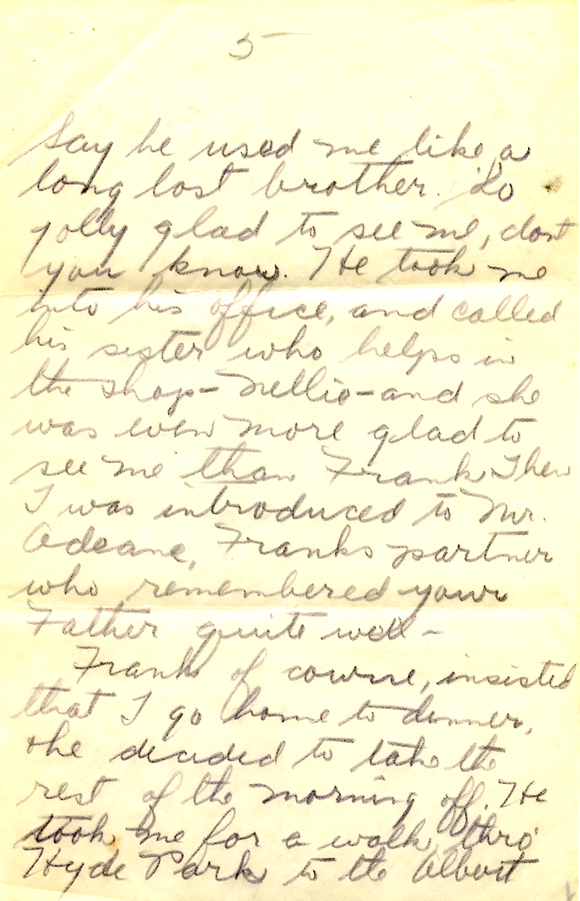 5
Say he used me like a
long lost brother. So
jolly glad to see me, dont
you know. He took me
into his office, and called
his sister who helps in
the shop - Nellie - and she
was even more glad to
see me than Frank. Then
I was introduced to Mr.
Adeane, Franks partner
who remembered your
Father quite well -
Frank of course, insisted
that I go home to dinner,
she decided to take the
rest of the morning off. He
took me for a walk thro'
Hyde Park to the Albert